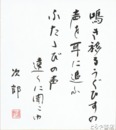 鳴き移るうぐひすの
声を耳に追ふ
ふたゝびの声
遠くに聞こゆ
次郎